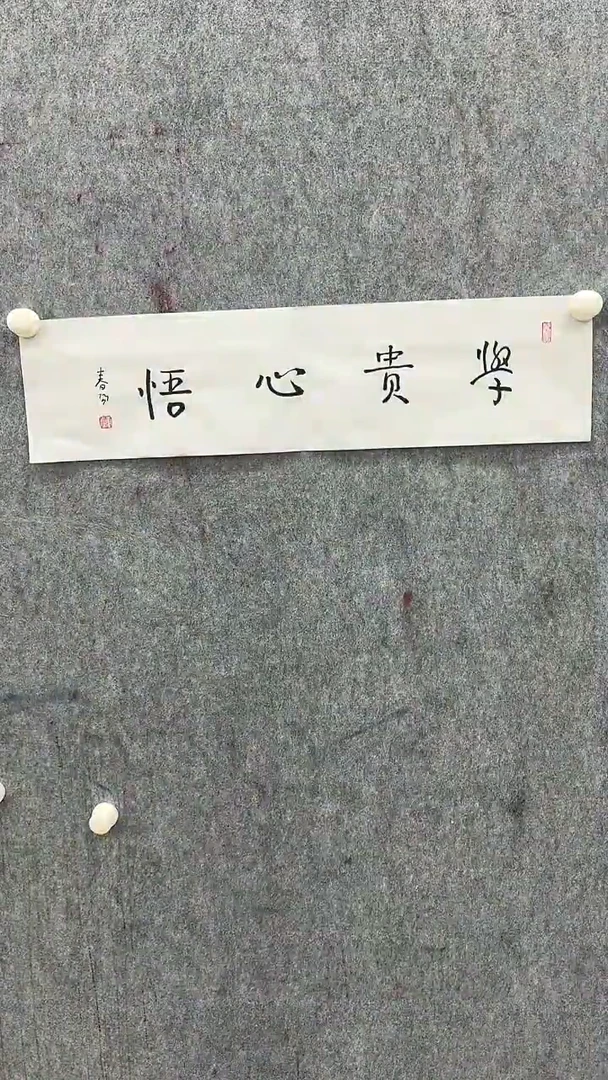 學贵心悟
春